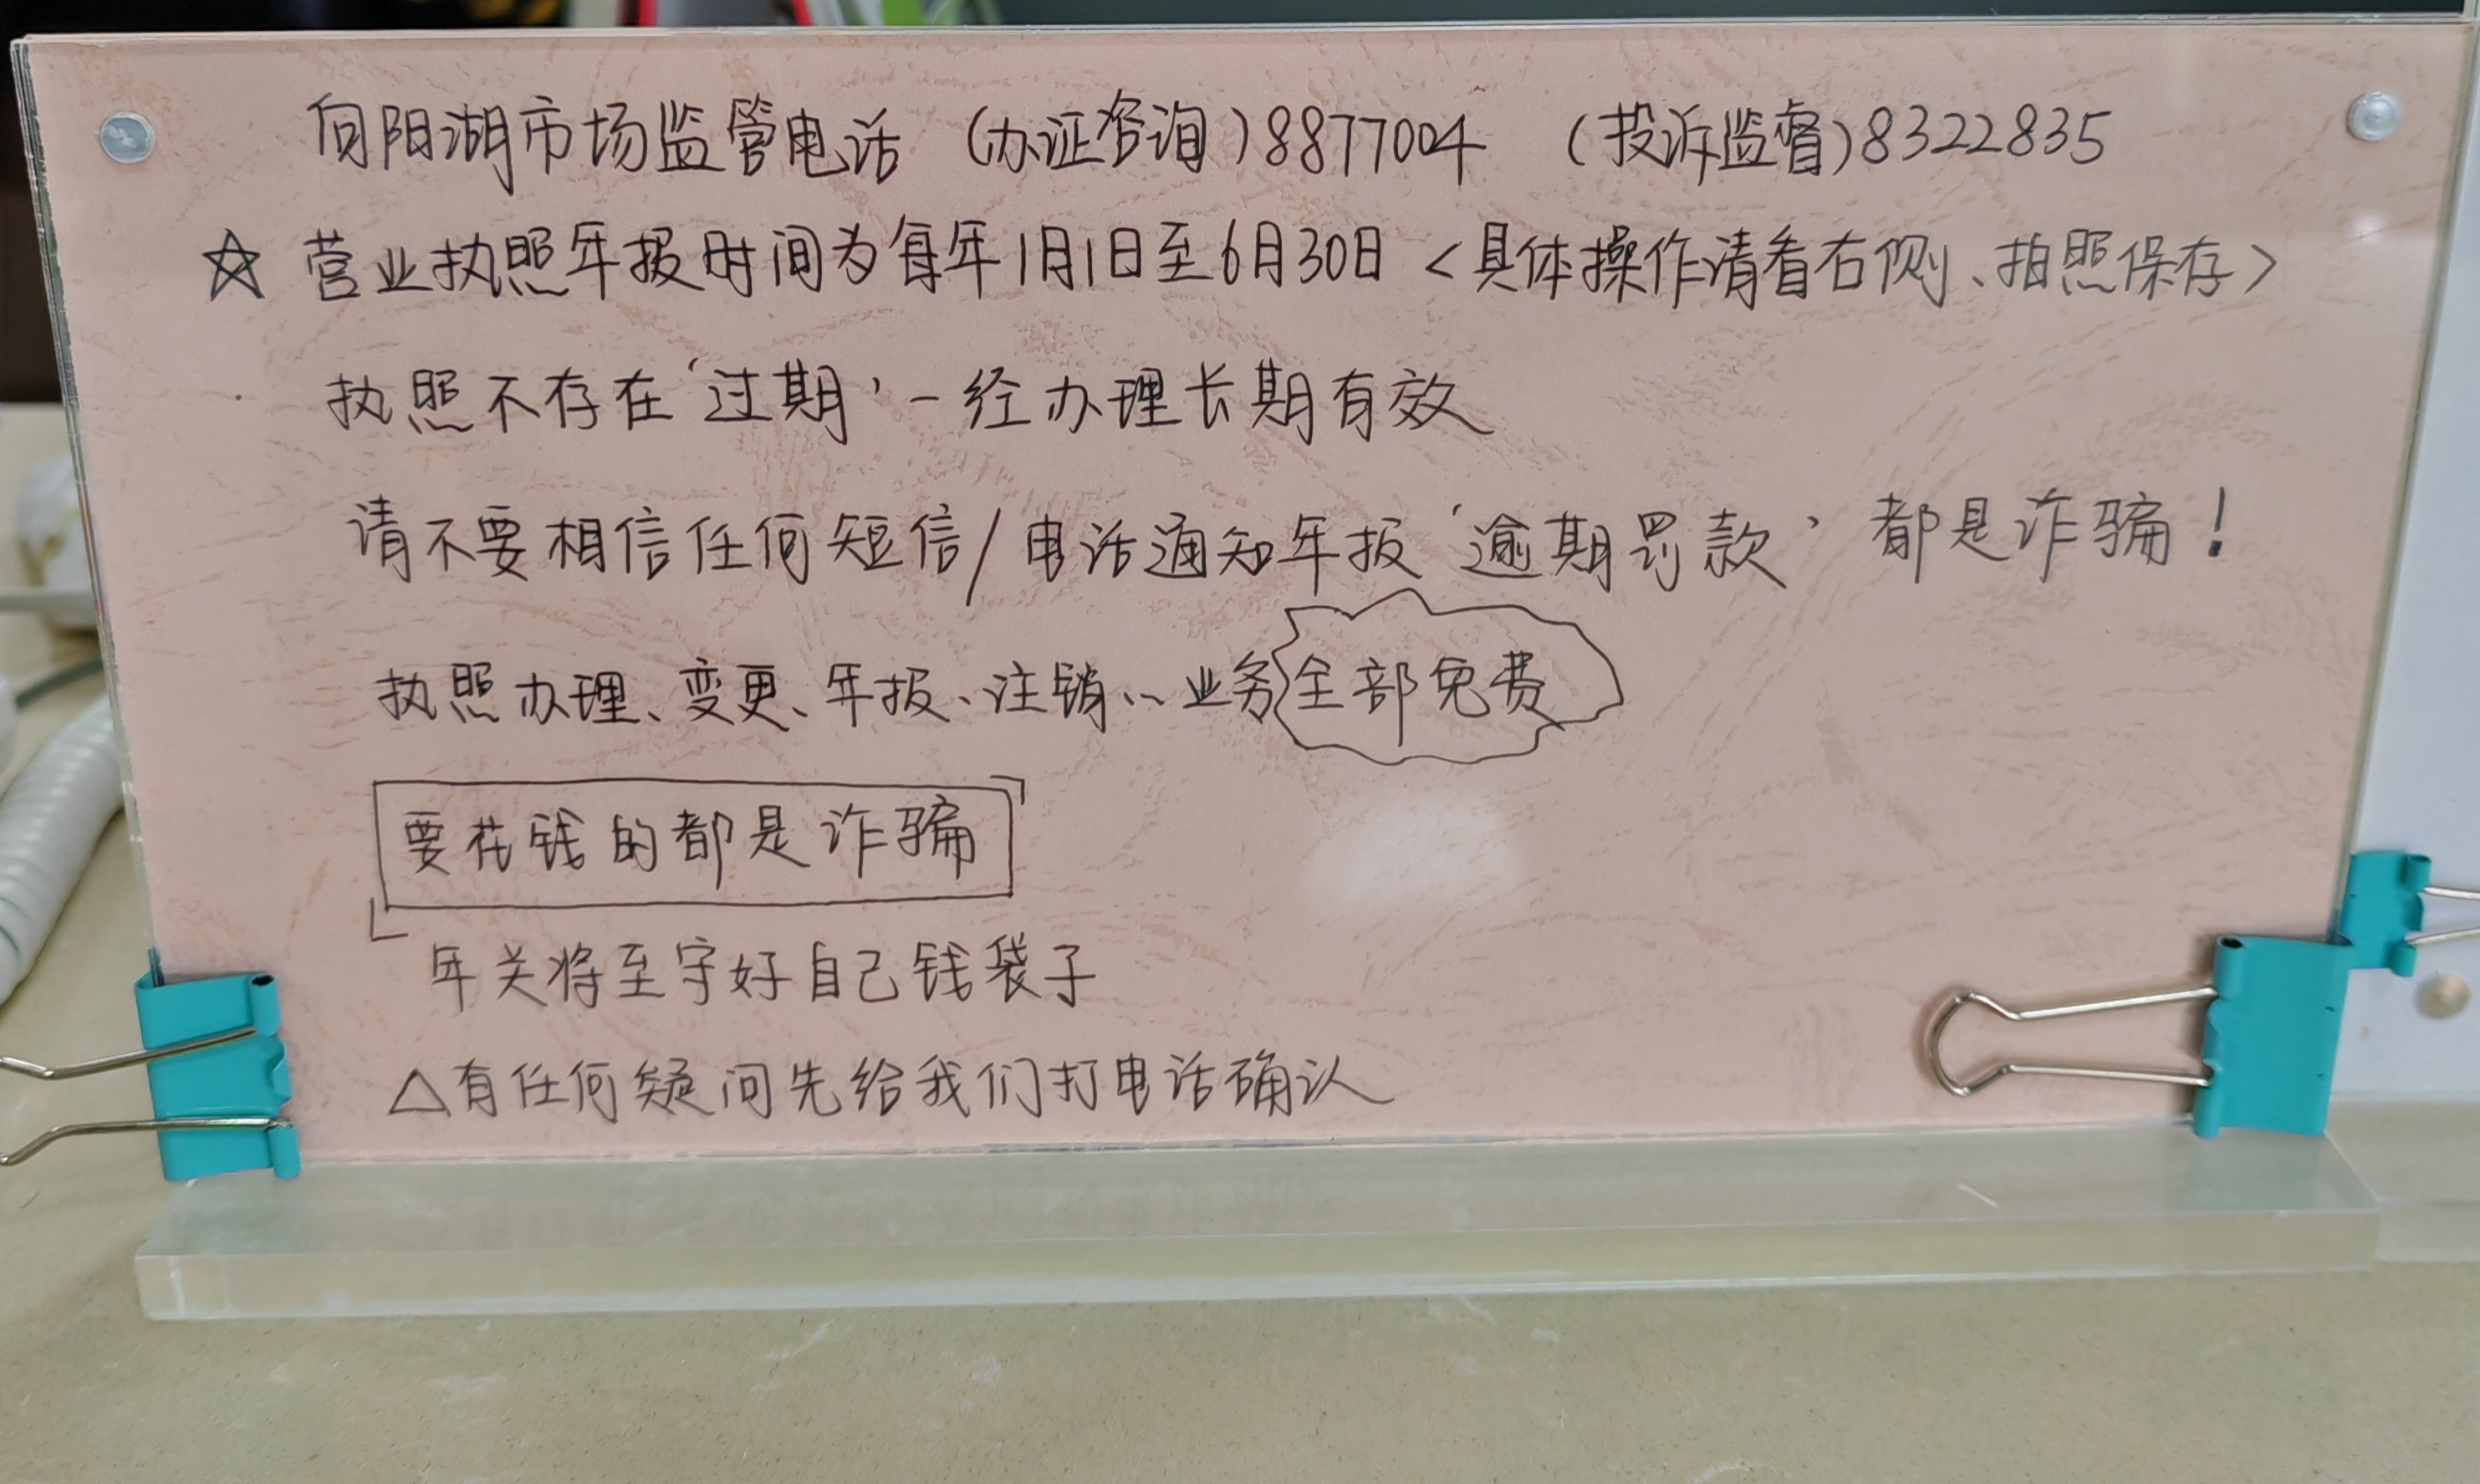 向阳湖市场监管电话 (办证咨询)8877004 (投诉监督)8322835
☆ 营业执照年报时间为每年1月1日至6月30日<具体操作请看右侧、拍照保存>
执照不存在‘过期’一经办理长期有效
请不要相信任何短信/电话通知年报‘逾期罚款’都是诈骗!
执照办理、变更、年报、注销…业务全部免费
要花钱的都是诈骗
年关将至守好自己钱袋子
△有任何疑问先给我们打电话确认